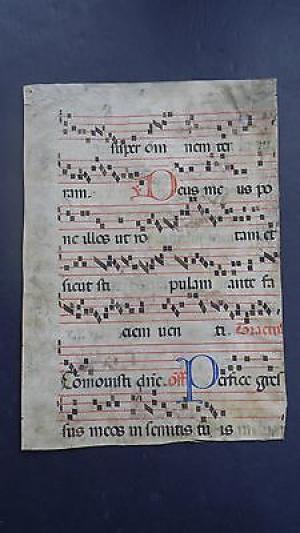 super om nem ter
ram. V Deus me us po
ne illos ut ro tam et
sicut sti pulam ante fa
ciem uen ti. Tractus
Comouisti dñe. off Perfice gres
sus meos in semitis tu is